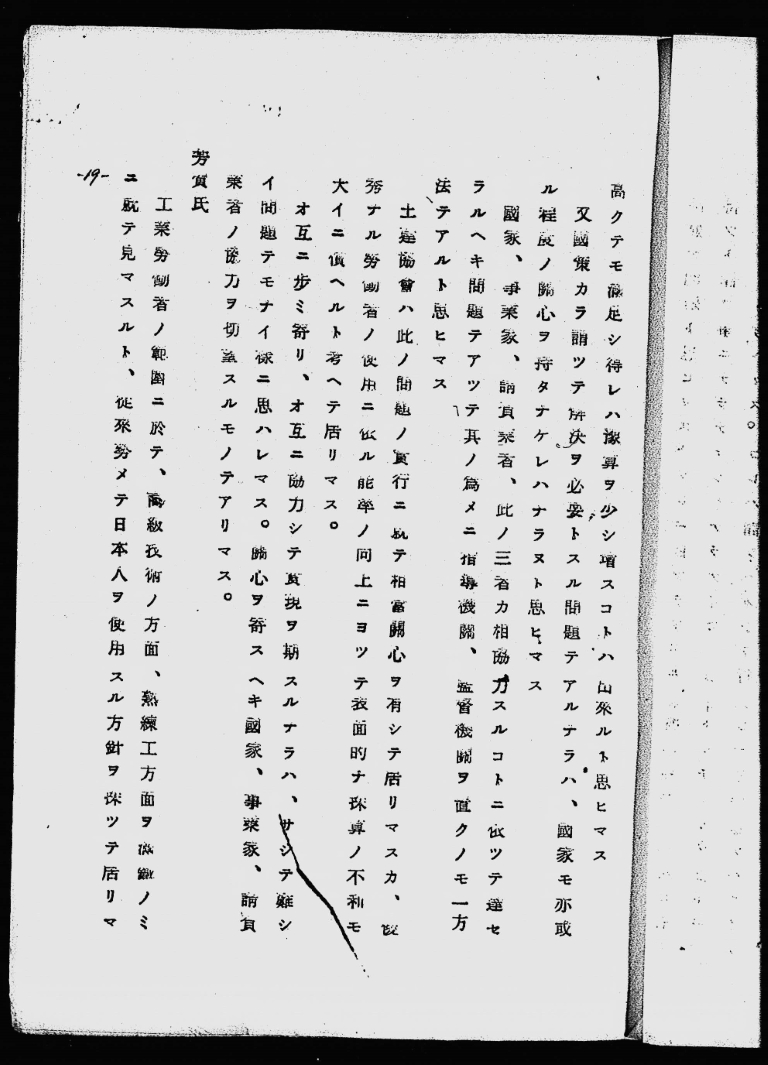 高クテモ滿足シ得レハ豫算ヲ少シ増スコトハ出來ルト思ヒマス
又國策カラ謂ツテ解決ヲ必要トスル問題テアルナラハ、國家モ亦或
ル程度ノ關心ヲ持タナケレハナラヌト思ヒマス
國家、事業家、請負業者、此ノ三者カ相協力スルコトニ依ツテ達セ
ラルヘキ問題テアツテ其ノ爲メニ指導機關、監督機關ヲ置クノモ一方
法テアルト思ヒマス
土建協會ハ此ノ問題ノ實行ニ就テ相當關心ヲ有シテ居リマスカ、優
秀ナル勞働者ノ使用ニ依ル能率ノ向上ニヨツテ表面的ナ採算ノ不利モ
大イニ償ヘルト考ヘテ居リマス。
オ互ニ步ミ寄リ、オ互ニ協力シテ實現ヲ期スルナラハ、サシテ難シ
イ問題テモナイ様ニ思ハレマス。關心ヲ寄スヘキ國家、事業家、請負
業者ノ協力ヲ切望スルモノテアリマス。
芳賀氏
工業勞働者ノ範圍ニ於テ、高級技術ノ方面、熟練工方面ヲ組織ノミ
ニ就テ見マスルト、從來努メテ日本人ヲ使用スル方針ヲ採ツテ居リマ
-19-